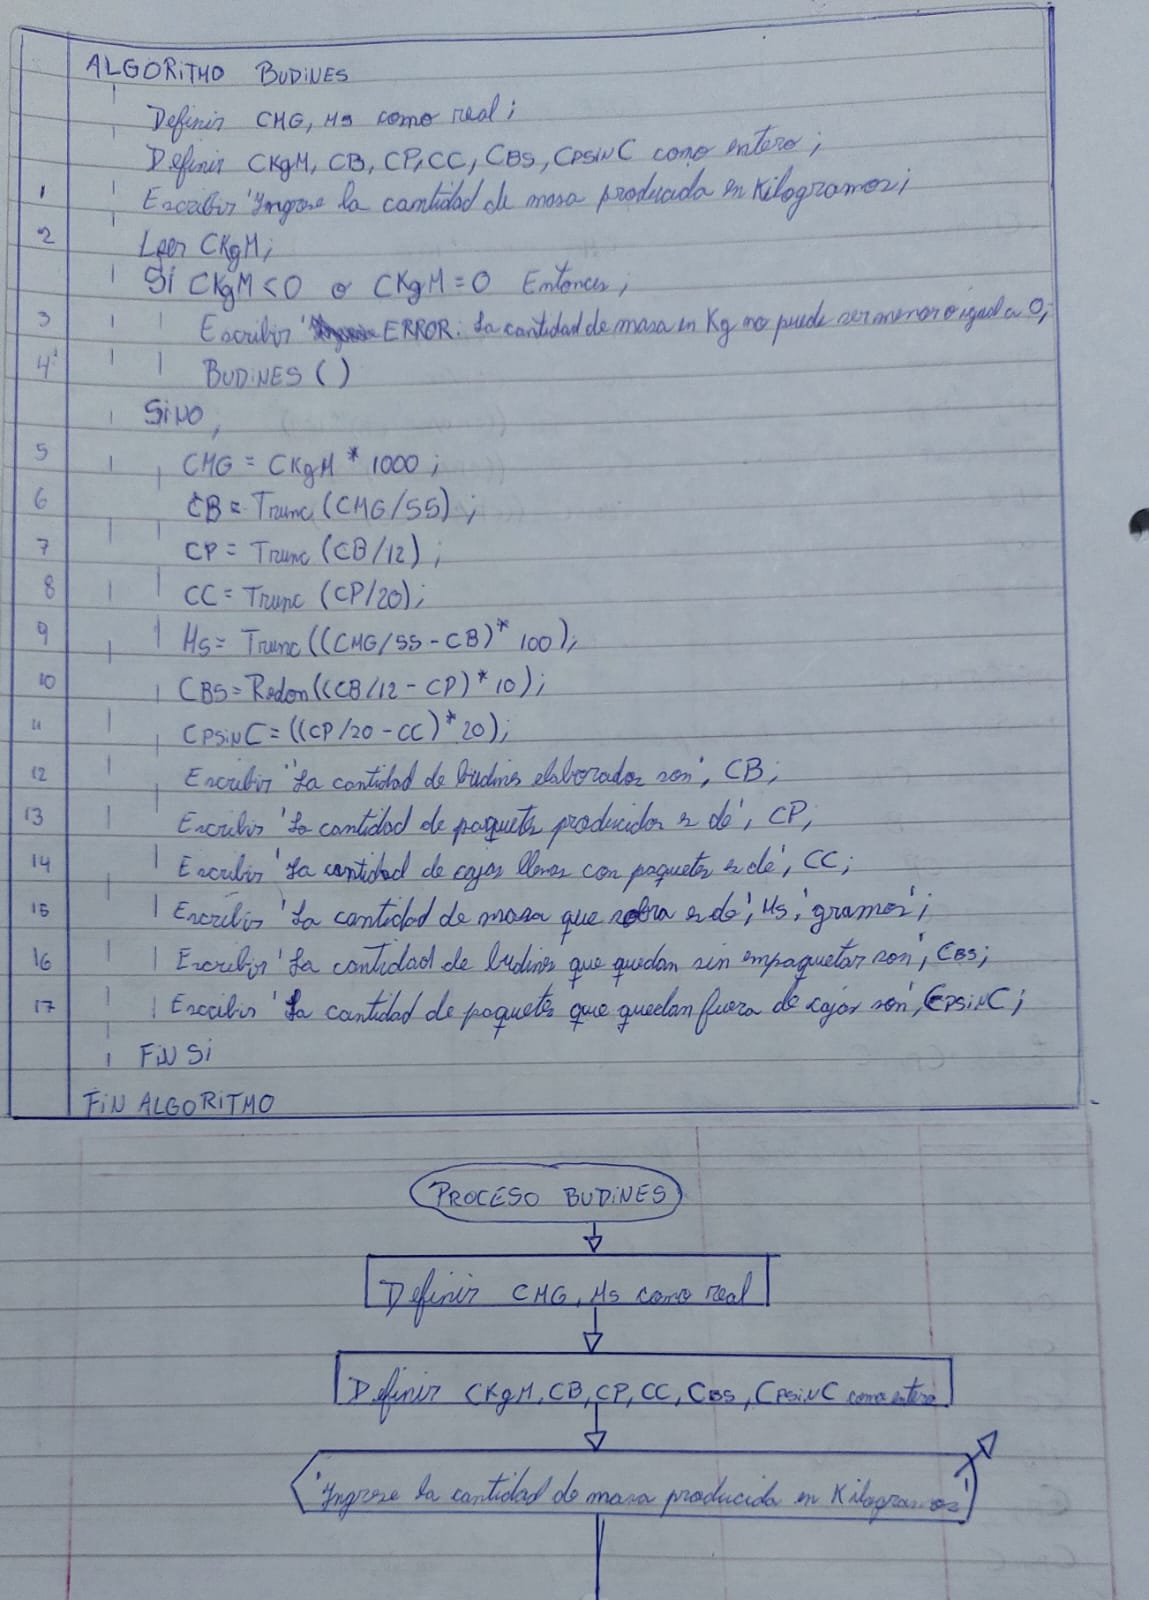 ALGORITMO BUDINES
Definir CMG, Ms como real;
Definir CKgM, CB, CP, CC, CBS, CPSINC como entero;
1 Escribir 'Ingrese la cantidad de masa producida en Kilogramos;
2 Leer CKgM;
Si CKgM<0 o CKgM=0 Entonces;
3 Escribir ' ERROR: La cantidad de masa en Kg no puede ser menor o igual a 0;
4 BUDINES ()
SINO;
5 CMG = CKgM * 1000;
6 CB = Trunc (CMG/55);
7 CP = Trunc (CB/12);
8 CC = Trunc (CP/20);
9 Ms = Trunc ((CMG/55-CB)* 100);
10 CBS = Redon((CB/12-CP)*10);
11 CPSINC = ((CP/20-CC)*20);
12 Escribir "La cantidad de budines elaborados son', CB;
13 Escribir 'La cantidad de paquetes producidos es de', CP,
14 Escribir 'La cantidad de cajas llenas con paquetes es de', CC;
15 Escribir 'La cantidad de masa que sobra es de', Ms, 'gramos';
16 Escribir 'La cantidad de budines que quedan sin empaquetar son', CBS;
17 Escribir 'La cantidad de paquetes que quedan fuera de cajas son', CPSINC;
FIN SI
FIN ALGORITMO
PROCESO BUDINES
Definir CMG, Ms como real
Definir CKgM, CB, CP, CC, CBS, CPSINC como entero
'Ingrese la cantidad de masa producida en Kilogramos'